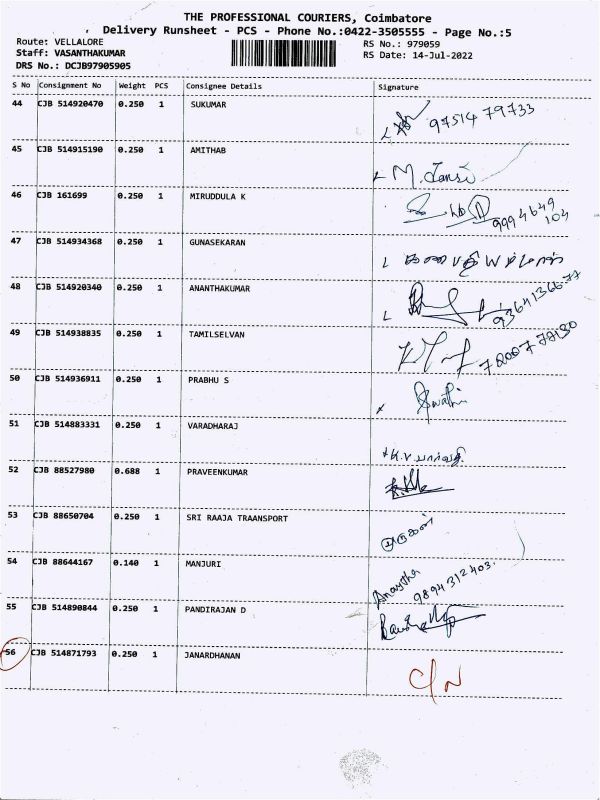 THE PROFESSIONAL COURIERS, Coimbatore
Delivery Runsheet - PCS - Phone No.:0422-3505555 - Page No.:5
Route: VELLALORE
RS No.: 979059
Staff: VASANTHAKUMAR
RS Date: 14-Jul-2022
DRS No.: DCJB97905905
S No Consignment No Weight PCS Consignee Details Signature
44 CJB 514920470 0.250 1 SUKUMAR
97514 79733
45 CJB 514915190 0.250 1 AMITHAB
M.
46 CJB 161699 0.250 1 MIRUDDULA K
9994649
104
47 CJB 514934368 0.250 1 GUNASEKARAN
48 CJB 514920340 0.250 1 ANANTHAKUMAR
9364136677
49 CJB 514938835 0.250 1 TAMILSELVAN
50 CJB 514936911 0.250 1 PRABHU S
Swathi
51 CJB 514883331 0.250 1 VARADHARAJ
K.V.
52 CJB 88527980 0.688 1 PRAVEENKUMAR
53 CJB 88650704 0.250 1 SRI RAAJA TRAANSPORT
54 CJB 88644167 0.140 1 MANJURI
9894312403.
55 CJB 514890844 0.250 1 PANDIRAJAN D
56 CJB 514871793 0.250 1 JANARDHANAN
C/N